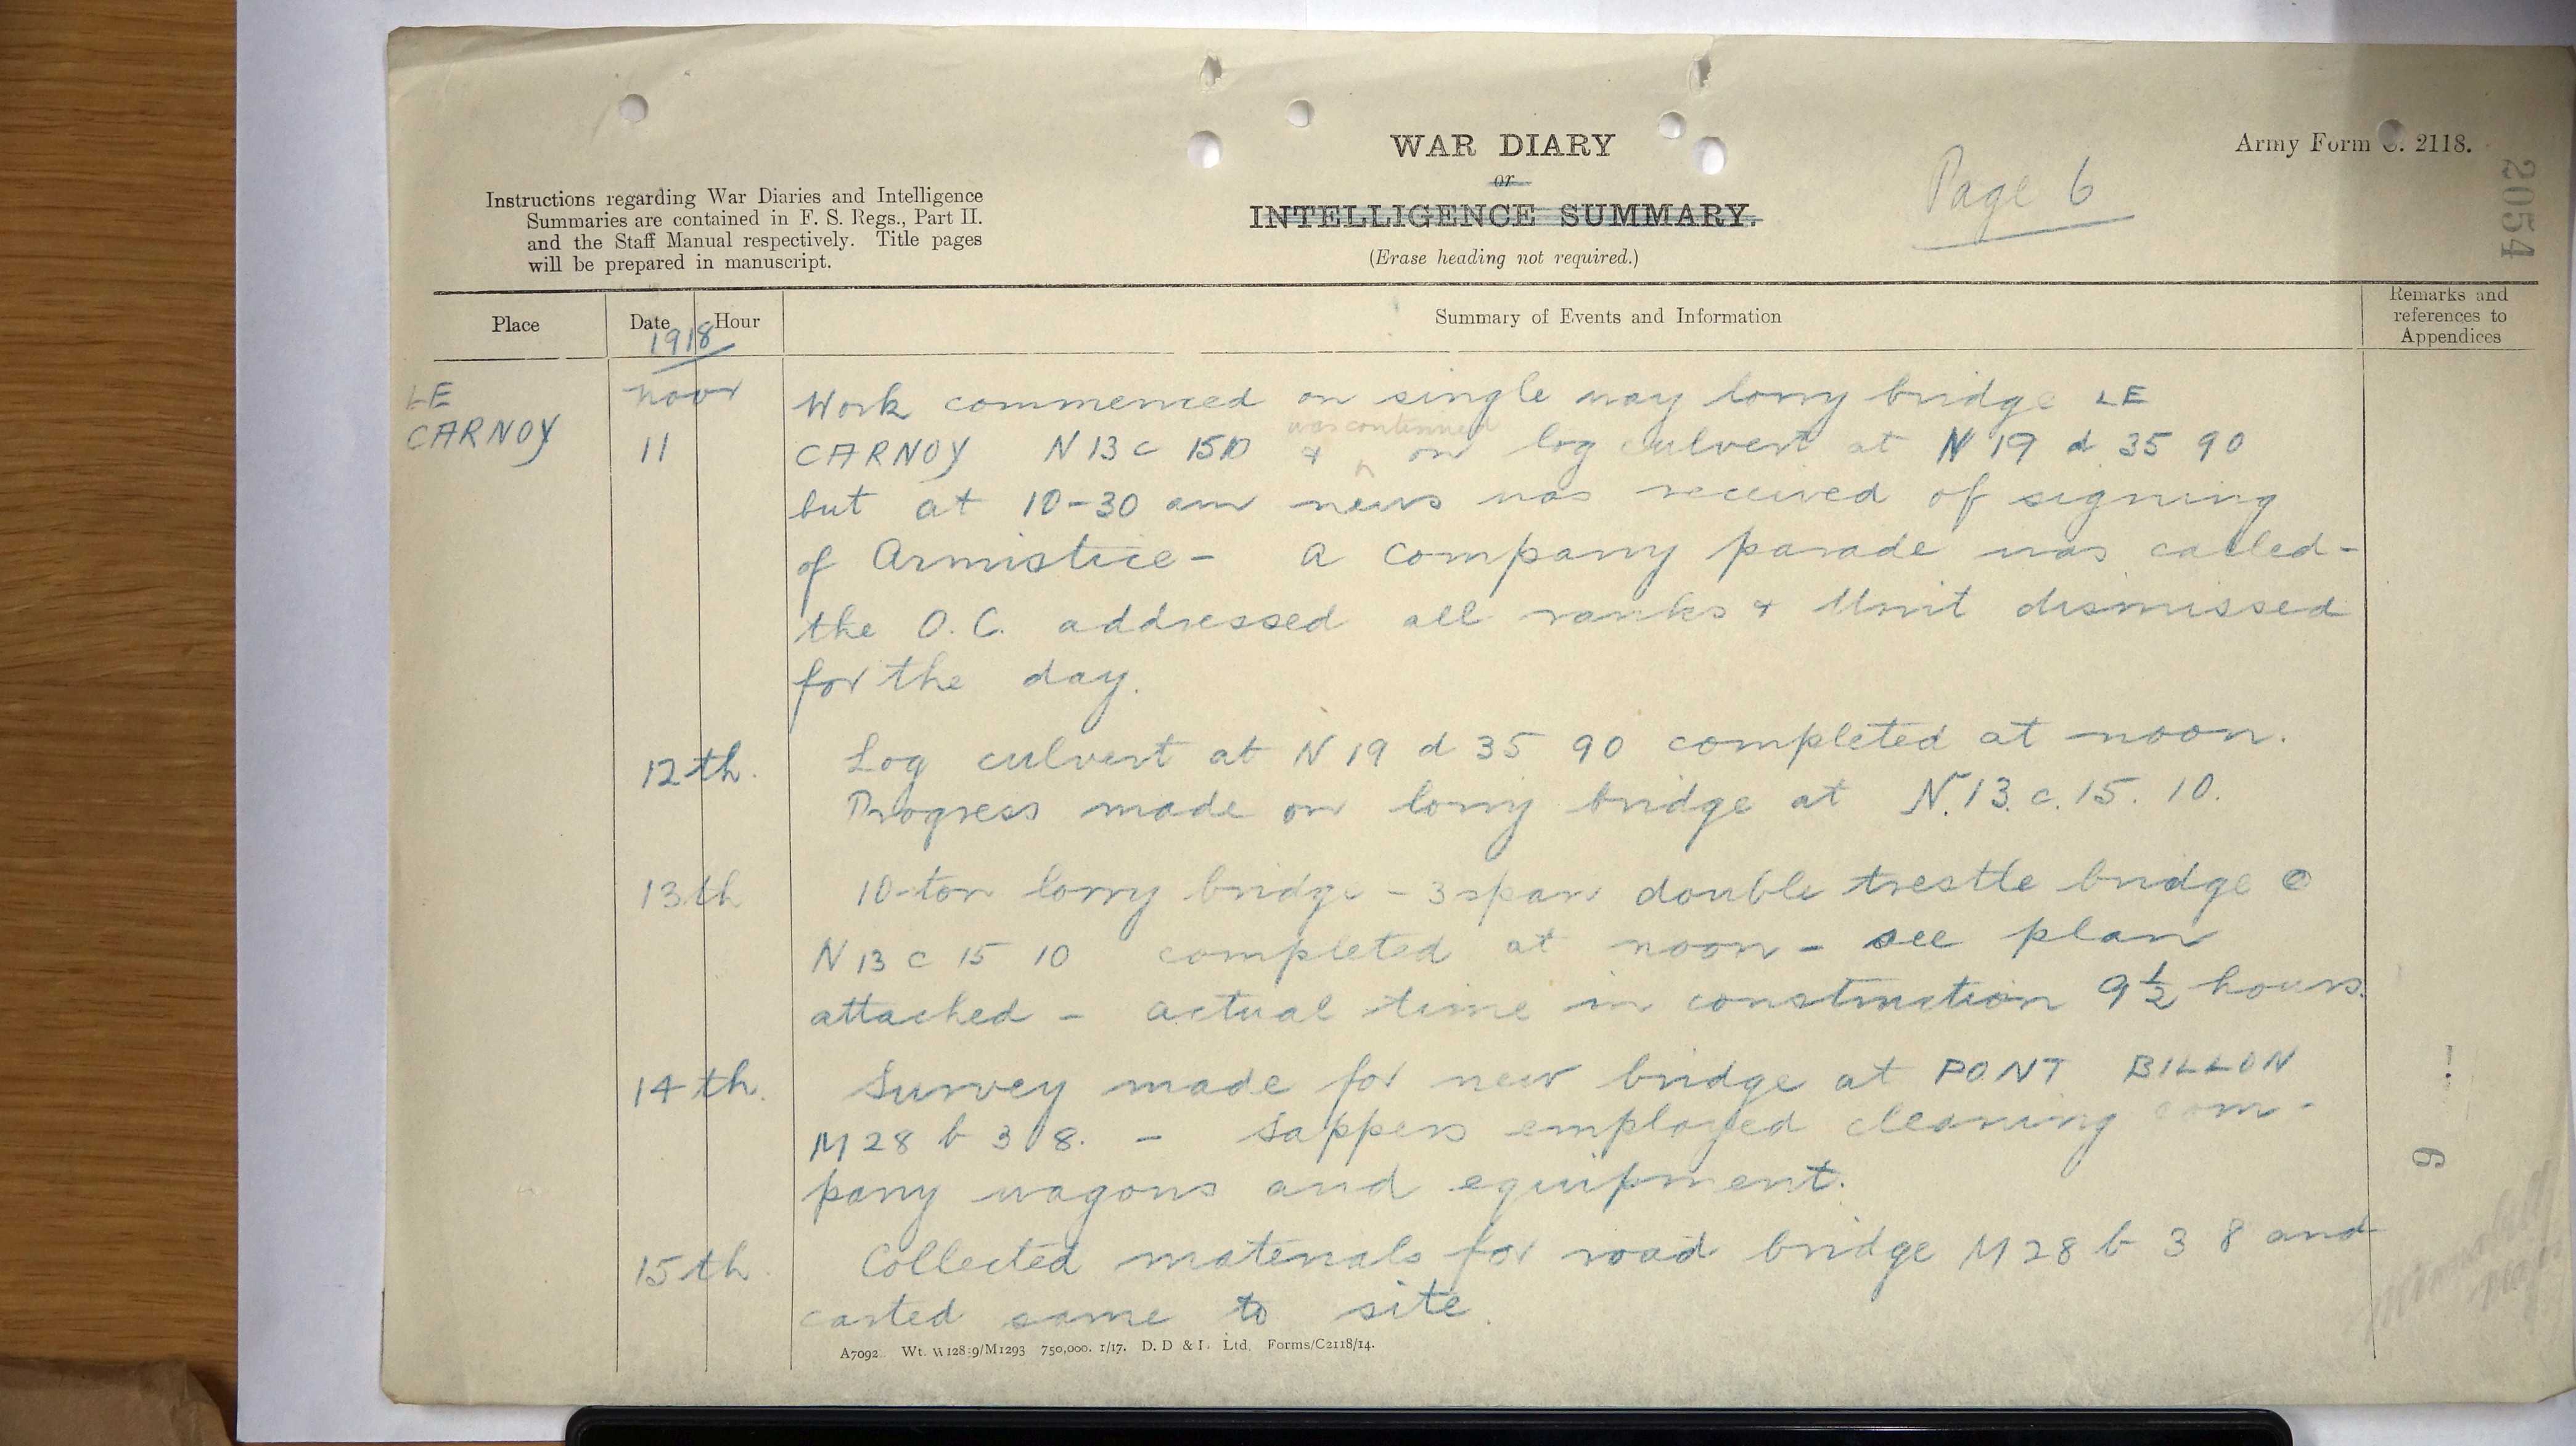 WAR DIARY
or
INTELLIGENCE SUMMARY.
(Erase heading not required.)
Page 6
Army Form C. 2118.
2054
Instructions regarding War Diaries and Intelligence
Summaries are contained in F. S. Regs., Part II.
and the Staff Manual respectively. Title pages
will be prepared in manuscript.
Place
Date
Hour
Summary of Events and Information
Remarks and
references to
Appendices
1918
LE
CARNOY
Novr
11
Work commenced on single way lorry bridge LE
CARNOY N 13 c 15 10 & was continued on log culvert at N 19 d 35 90
but at 10-30 am news was received of signing
of Armistice - a company parade was called -
the O.C. addressed all ranks & Unit dismissed
for the day.
12th. Log culvert at N 19 d 35 90 completed at noon.
Progress made on lorry bridge at N.13.c.15.10.
13th 10-ton lorry bridge - 3 span double trestle bridge @
N 13 c 15 10 completed at noon - see plan
attached - actual time in construction 9½ hours.
14th. Survey made for new bridge at PONT BILLON
M 28 b 3 8. - Sappers employed cleaning com-
pany wagons and equipment.
15th Collected materials for road bridge M 28 b 3 8 and
carted same to site.
6
A7092. Wt. W128:9/M1293 750,000. 1/17. D. D & L. Ltd. Forms/C2118/14.